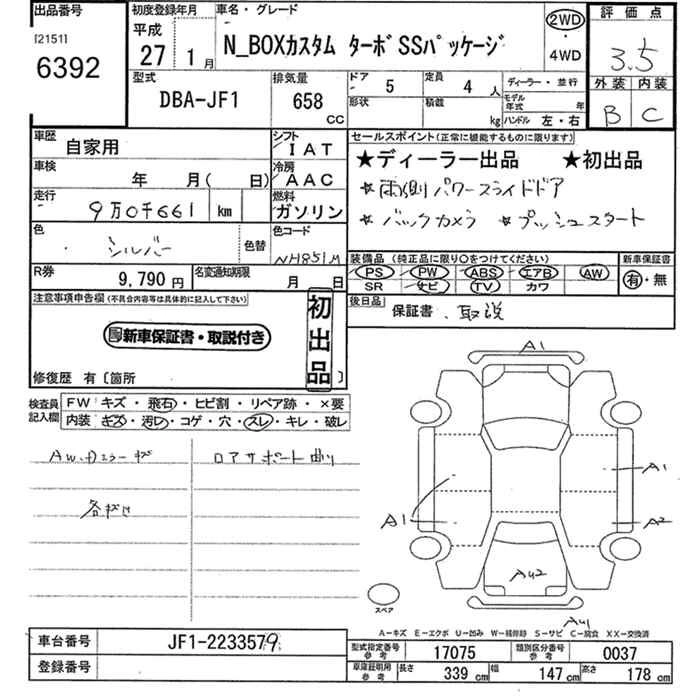 出品番号
[2151]
6392
初度登録年月
平成
27年 1月
車名・グレード
N_BOXカスタム ターボSSパッケージ
2WD
・
4WD
評価点
3.5
外装 内装
B C
型式
DBA-JF1
排気量
658
CC
ドア 5
形状
定員 4 人
積載 kg
ディーラー・並行
モデル年式 年
ハンドル 左・右
車歴
自家用
シフト
IAT
車検
年 月( 日)
冷房
AAC
走行
9万0千661 km
燃料
ガソリン
色
シルバー
色替
色コード
NH851M
R券
9,790 円
名変通知期限
月 日
セールスポイント(正常に機能するものに限ります)
★ディーラー出品 ★初出品
☆両側パワースライドドア
☆バックカメラ ☆プッシュスタート
装備品(純正品に限り○をつけてください)
PS PW ABS エアB AW
SR ナビ TV カワ
新車保証書
有・無
後日品
保証書、取説
注意事項申告欄(不具合内容等は具体的に記入して下さい)
新車保証書・取説付き
初出品
修復歴 有〔箇所 〕
検査員記入欄
FW キズ・飛石・ヒビ割・リペア跡・×要
内装 キズ・汚レ・コゲ・穴・スレ・キレ・破レ
AW、ドアミラーキズ
ロアサポート曲り
各キズ
A1
A1
A1
A2
AU2
AU1
スペア
A―キズ E―エクボ U―凹み W―補修跡 S―サビ C―腐食 XX―交換済
車台番号
JF1-2233579
登録番号
型式指定番号 参考
17075
類別区分番号 参考
0037
車庫証明用 参考
長さ 339 cm 幅 147 cm 高さ 178 cm